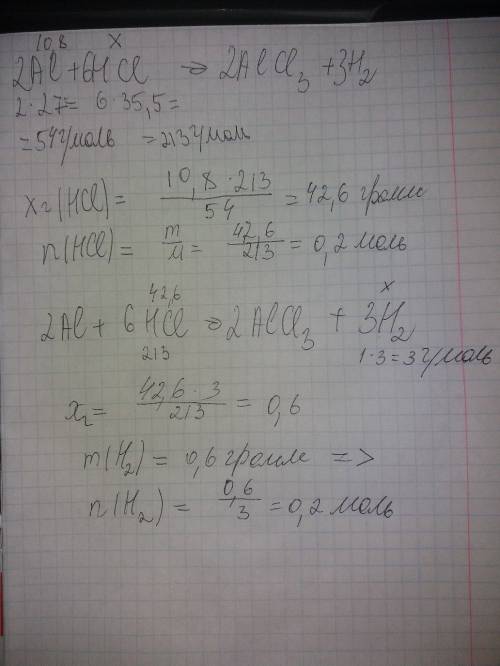 10,8 x
2Al + 6HCl → 2AlCl₃ + 3H₂
2·27= 6·35,5=
=54 г/моль =213 г/моль
Xг(HCl) = 10,8·213/54 = 42,6 грамм
n(HCl) = m/M = 42,6/213 = 0,2 моль
42,6 x
2Al + 6HCl → 2AlCl₃ + 3H₂
213 1·3=3 г/моль
xг = 42,6·3/213 = 0,6
m(H₂) = 0,6 грамм =>
n(H₂) = 0,6/3 = 0,2 моль